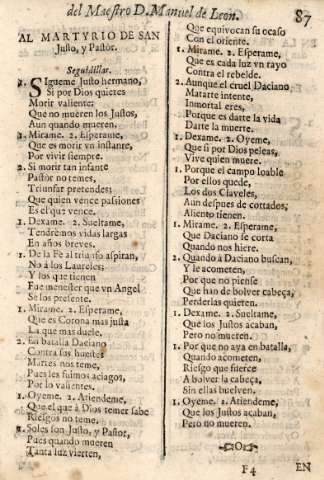 del Maestro D. Manuel de Leon. 87
AL MARTYRIO DE SAN
Justo, y Pastor.
Seguidillas.
1. SIgueme Justo hermano,
Si por Dios quieres
Morir valiente:
Que no mueren los Justos,
Aun quando mueren.
1. Mirame. 2. Esperame,
Que es morir vn instante,
Por vivir siempre.
2. Si morir tan infante
Pastor no temes,
Triunfar pretendes;
Que quien vence passiones
Es el que vence.
1. Dexame. 2. Sueltame,
Tendrèmos vidas largas
En años breves.
1. De la Fè al triunfo aspiran,
No à los Laureles;
Y los que tienen
Fue menester que vn Angel
Se los presente.
1. Mirame. 2. Esperame,
Que es Corona mas justa
La que mas duele.
2. En batalla Daciano
Contra sus huestes
Martes nos teme,
Pues les fuimos aciagos,
Por lo valientes.
1. Oyeme. 2. Atiendeme,
Que el que à Dios temer sabe
Riesgos no teme.
2. Soles son Justo, y Pastor,
Pues quando mueren
Tanta luz vierten,
Que equivocan su ocaso
Con el oriente.
1. Mirame. 2. Esperame,
Que es cada luz vn rayo
Contra el rebelde.
2. Aunque el cruel Daciano
Matarte intente,
Inmortal eres,
Porque es darte la vida
Darte la muerte.
1. Dexame. 2. Oyeme,
Que si por Dios peleas,
Vive quien muere.
1. Porque el campo loable
Por ellos quede,
Los dos Claveles,
Aun despues de cortados,
Aliento tienen.
1. Mirame. 2. Esperame,
Que Daciano se corta
Quando nos hiere.
2. Quando à Daciano buscan,
Y le acometen,
Por que no piense
Que han de bolver cabeça,
Perderlas quieren.
1. Dexame. 2. Sueltame,
Què los Justos acaban,
Pero no mueren.
1. Por que no aya en batalla,
Quando acometen,
Riesgo que fuerce
A bolver la cabeça,
Sin ellas buelven.
1. Oyeme. 2. Atiendeme,
Que los Justos acaban,
Pero no mueren.
F4 EN